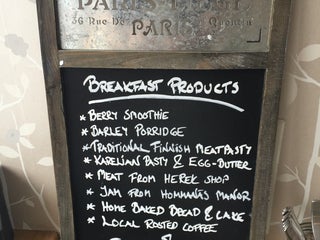 PARIS
36 Rue De
PARIS
BREAKFAST PRODUCTS
* BERRY SMOOTHIE
* BARLEY PORRIDGE
* TRADITIONAL FINNISH MEATPASTY
* KARELIAN PASTY & EGG-BUTTER
* MEAT FROM HEREK SHOP
* JAM FROM HOMMANÄS MANOR
* HOME BAKED BREAD & CAKE
* LOCAL ROSTED COFFEE